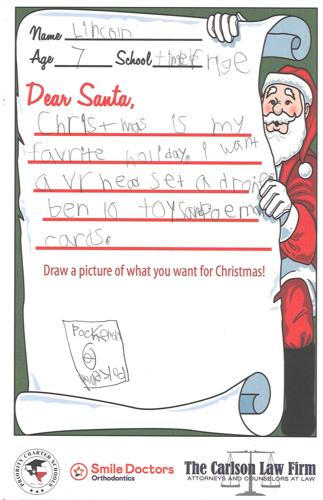 Name Lincoln
Age 7 School timber ridge
Dear Santa,
Christmas is my
favrite holiday. I want
a vr head set a drone
ben 10 toys and Poemon
cards.
Draw a picture of what you want for Christmas!
PRIORITY CHARTER SCHOOLS
Smile Doctors
Orthodontics
The Carlson Law Firm
ATTORNEYS AND COUNSELORS AT LAW